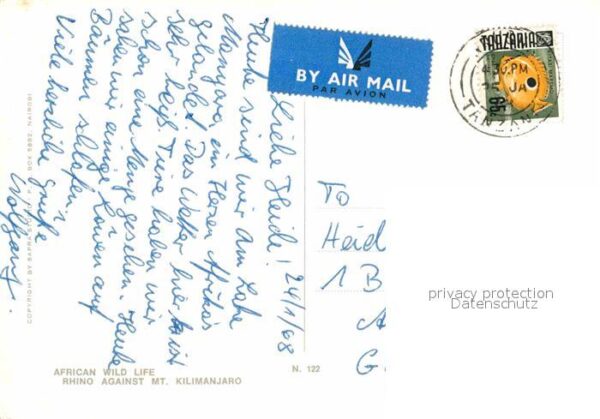 BY AIR MAIL
PAR AVION
TANZANIA
TANZANIA
Liebe Heide! 24/1/68
Heute sind wir am Lake
Manyara im Herzen Afrikas
gelandet. Das Wetter hier ist
sehr heiß. Tiere haben wir
schon eine Menge gesehen. Heute
sahen wir einige Löwen auf
Bäumen schlafen.
Viele herzliche Grüße
Wolfgang.
To
Heid
1 B
A
G
privacy protection
Datenschutz
COPYRIGHT BY SAPRA BOX 5882, NAIROBI
AFRICAN WILD LIFE
RHINO AGAINST MT. KILIMANJARO
N. 122